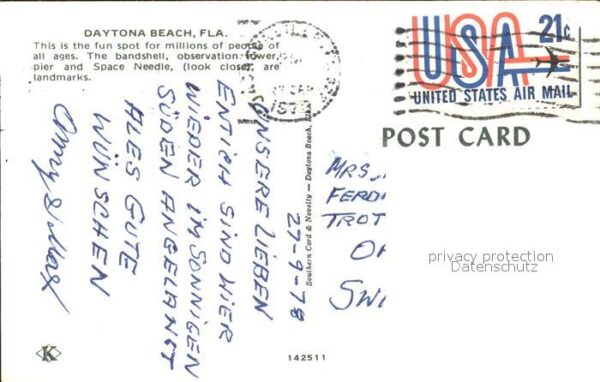 DAYTONA BEACH, FLA.
This is the fun spot for millions of people of
all ages. The bandshell, observation tower,
pier and Space Needle, (look close) are
landmarks.
USA 21c
UNITED STATES AIR MAIL
POST CARD
27-9-78
UNSERE LIEBEN
ENTLICH SIND WIER
WIEDER IM SONNIGEN
SÜDEN ANGELANGT
ALES GUTE
WÜNSCHEN
Southern Card & Novelty — Daytona Beach,
MRS.
FERDI
TROT
SWI
privacy protection
Datenschutz
K
142511